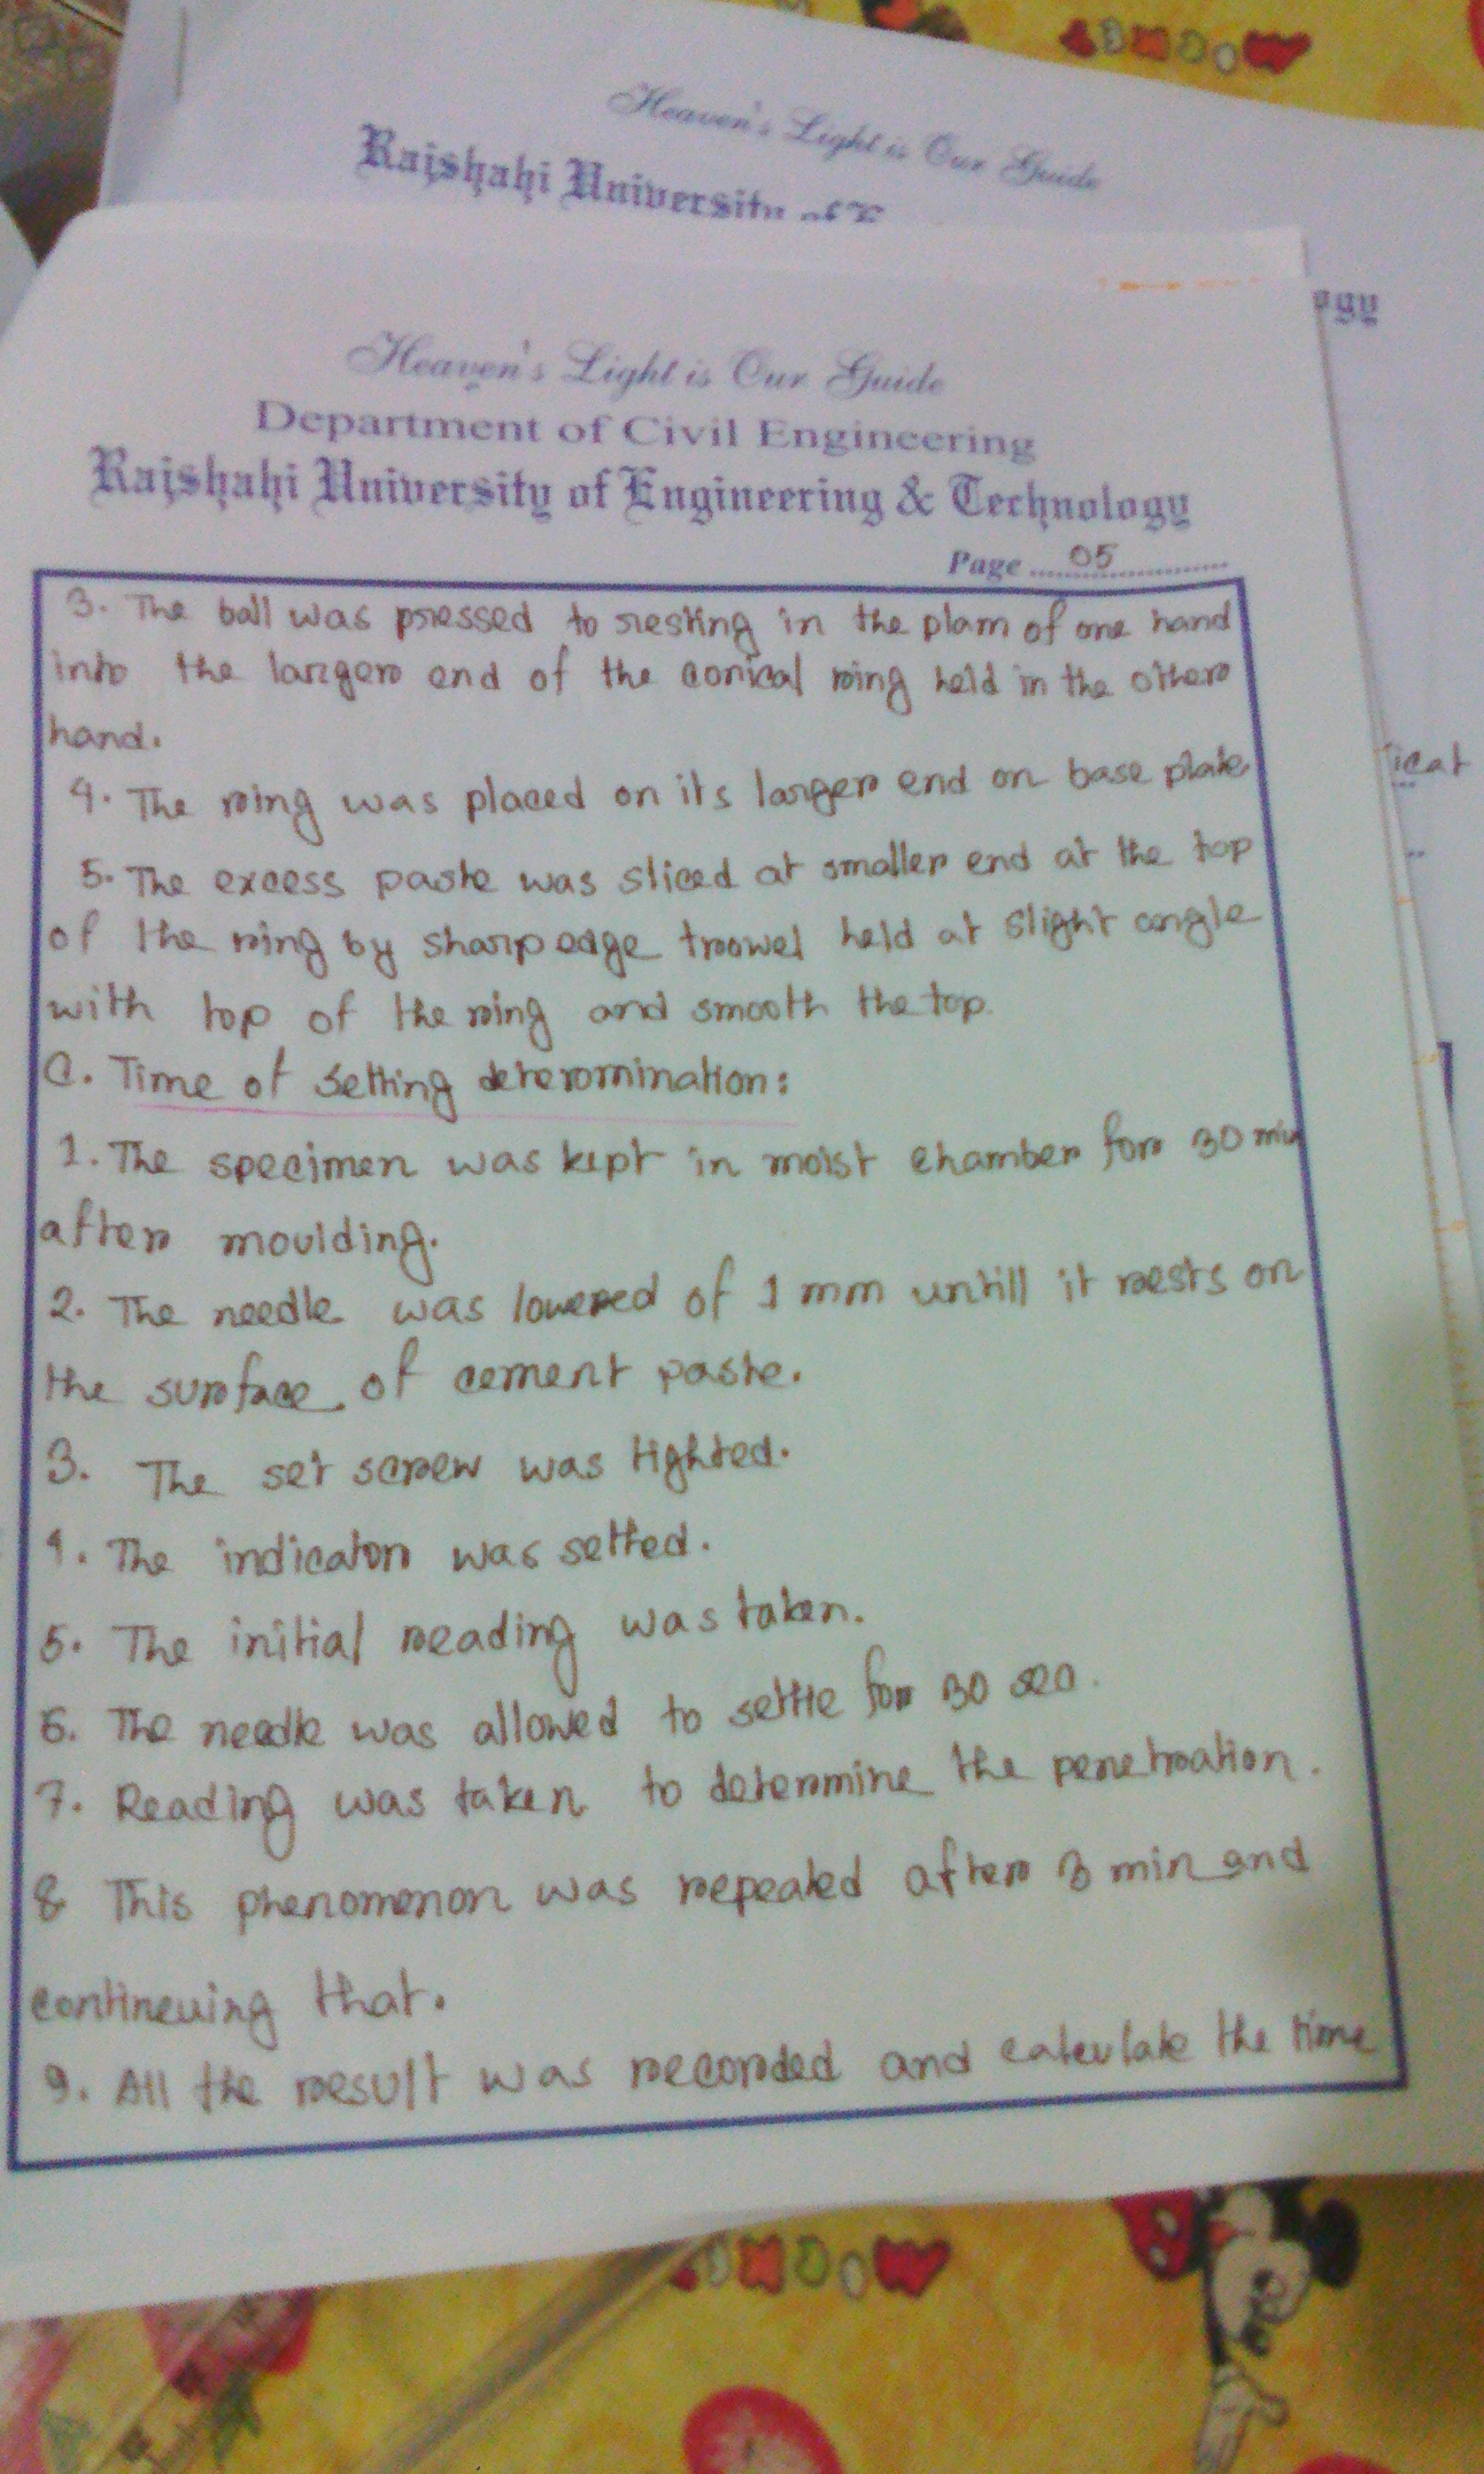 Heaven's Light is Our Guide
Rajshahi University of E
ogy
Heaven's Light is Our Guide
Department of Civil Engineering
Rajshahi University of Engineering & Technology
Page 05
3. The ball was pressed to resting in the plam of one hand
into the larger end of the conical ring held in the other
hand.
4. The ring was placed on its larger end on base plate
5. The excess paste was sliced at smaller end at the top
of the ring by sharp edge trowel held at slight angle
with top of the ring and smooth the top.
C. Time of setting determination:
1. The specimen was kept in moist chamber for 30 min
after moulding.
2. The needle was lowered of 1 mm untill it rests on
the surface of cement paste.
3. The set screw was tighted.
4. The indicator was setted.
5. The initial reading was taken.
6. The needle was allowed to settle for 30 sec.
7. Reading was taken to determine the penetration.
8 This phenomenon was repeated after 3 min and
contineuing that.
9. All the result was recorded and calculate the time
icat